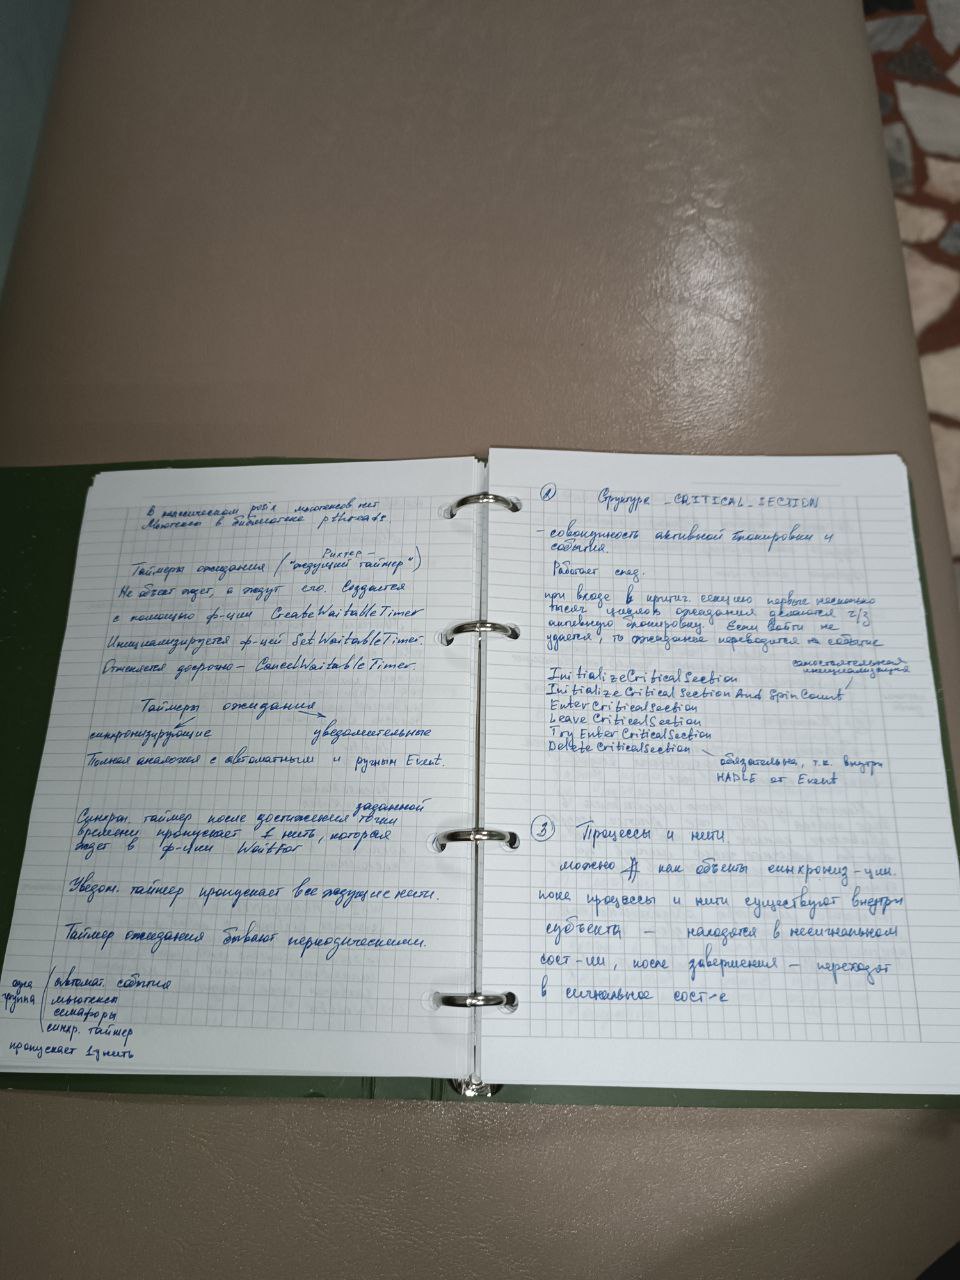 В классическом posix мьютексов нет
Мьютексы в библиотеке pthreads.
Рихтер –
Таймеры ожидания ("ждущий таймер")
Не объект ждет, а ждут его. Создается
с помощью ф-ции CreateWaitableTimer
Инициализируется ф-цией SetWaitableTimer.
Отменяется досрочно – CancelWaitableTimer.
Таймеры ожидания
синхронизирующие уведомительные
Полная аналогия с автоматным и ручным Event.
заданной
Синхрон. таймер после достижения точки
времени пропускает 1 нить, которая
ждет в ф-ции WaitFor
Уведом. таймер пропускает все ждущие нити.
Таймер ожидания бывают периодическими.
одна группа
автомат. события
мьютексы
семафоры
синхр. таймер
пропускает 1у нить
2 Структура _CRITICAL_SECTION
- совокупность активной блокировки и
события.
Работает след.
при входе в критич. секцию первые несколько
тысяч циклов ожидания делаются ч/з
активную блокировку. Если войти не
удается, то ожидание переводится на событие
самостоятельная
инициализация
InitializeCriticalSection
InitializeCriticalSectionAndSpinCount
EnterCriticalSection
LeaveCriticalSection
TryEnterCriticalSection
DeleteCriticalSection
обязательна, т.к. внутри
HADLE от Event
3 Процессы и нити.
можно как объекты синхрониз-ции.
пока процессы и нити существуют внутри
субъекта – находятся в несигнальном
сост-ии, после завершения – переходят
в сигнальное сост-е